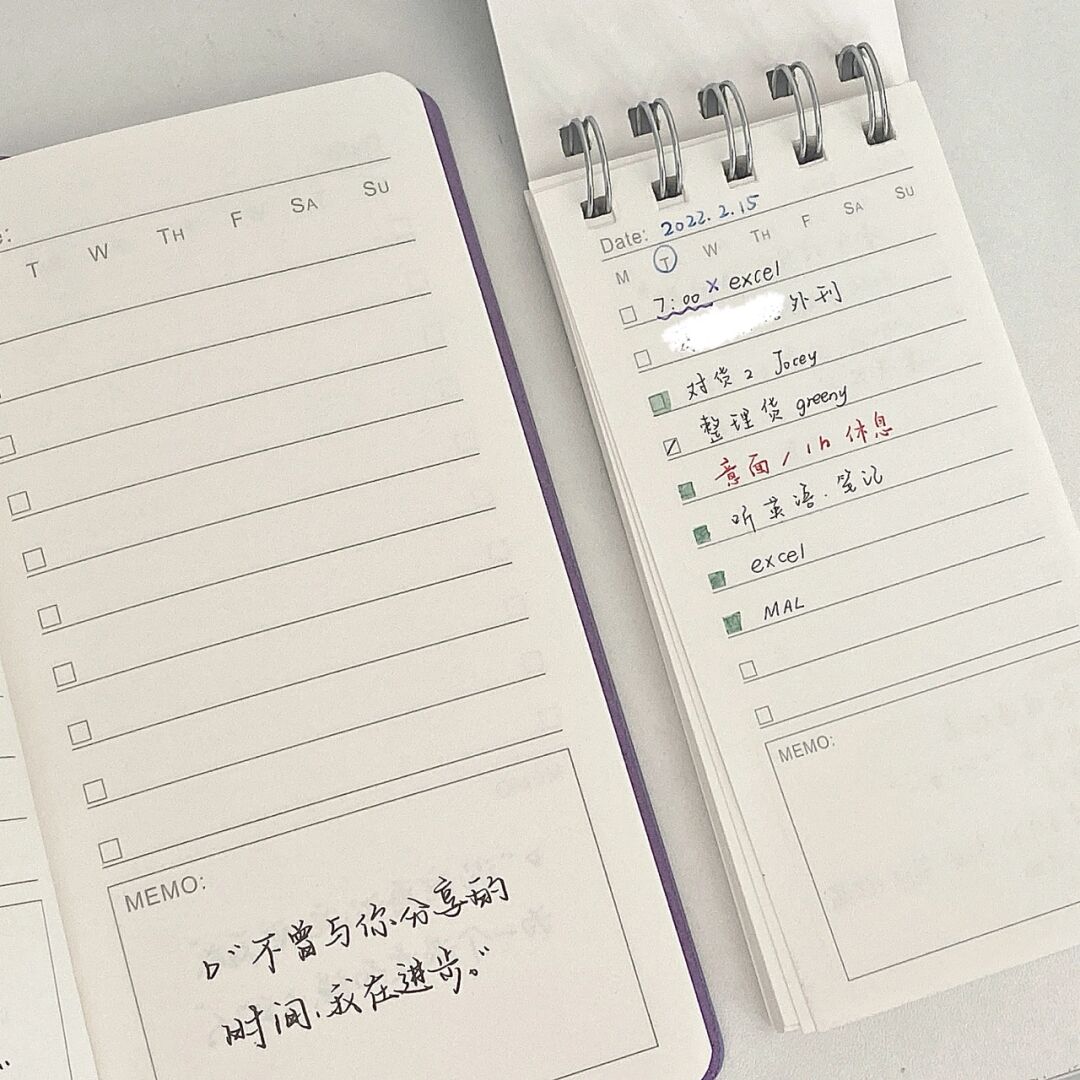 T W TH F SA SU
MEMO:
"不曾与你分享的
时间,我在进步。"
Date: 2022.2.15
M T W TH F SA SU
7:00 x excel
外刊
对货2 Jocey
整理货 greeny
意面/1h休息
听英语.笔记
excel
MAL
MEMO: